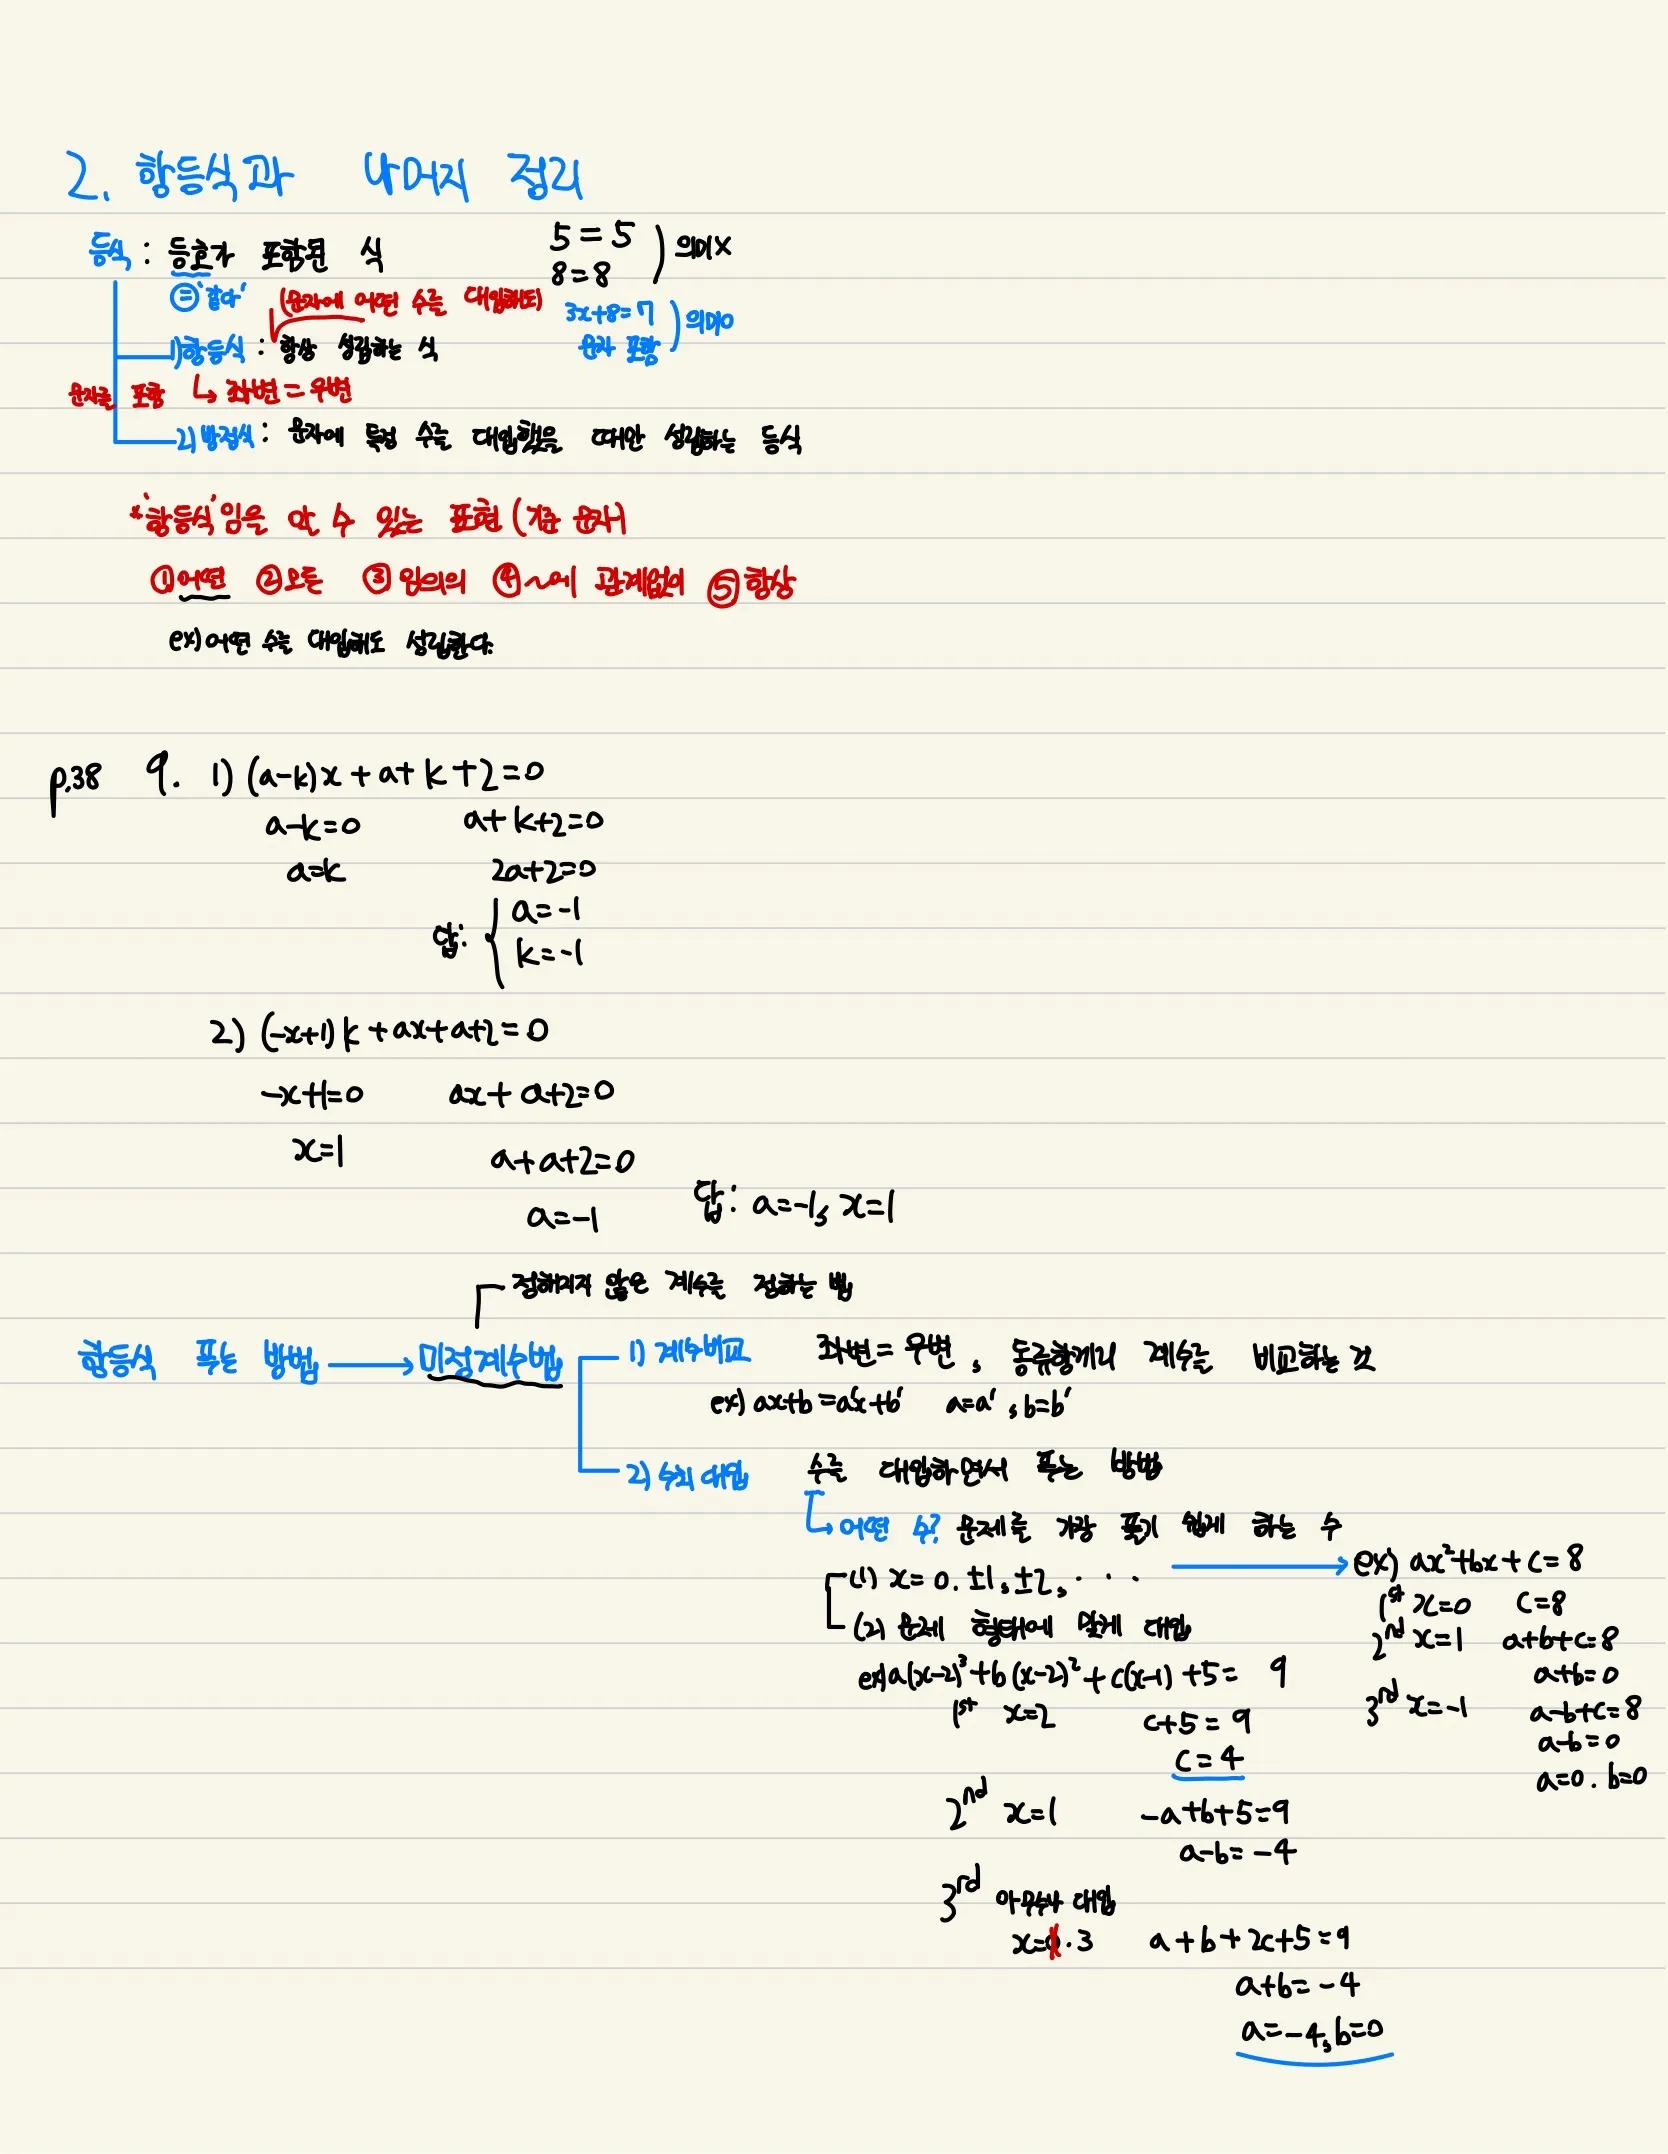 2. 항등식과 나머지 정리
등식 : 등호가 포함된 식
5=5
8=8
의미X
= '같다'
(문자에 어떤 수를 대입해도)
3x+8=7
문자 포함
의미O
1) 항등식 : 항상 성립하는 식
문자를 포함
↳ 좌변=우변
2) 방정식 : 문자에 특정 수를 대입했을 때만 성립하는 등식
* '항등식'임을 알 수 있는 표현 (기준 문자)
①어떤 ②모든 ③임의의 ④~에 관계없이 ⑤항상
ex) 어떤 수를 대입해도 성립한다.
p.38 9. 1) (a-k)x+a+k+2=0
a-k=0 a+k+2=0
a=k 2a+2=0
답: { a=-1
k=-1
2) (-x+1)k+ax+a+2=0
-x+1=0 ax+a+2=0
x=1 a+a+2=0
a=-1 답: a=-1, x=1
정해지지 않은 계수를 정하는 법
항등식 푸는 방법 → 미정계수법
1) 계수비교 좌변=우변, 동류항끼리 계수를 비교하는 것
ex) ax+b=a'x+b' a=a', b=b'
2) 수치 대입 수를 대입하면서 푸는 방법
↳ 어떤 수? 문제를 가장 풀기 쉽게 하는 수
(1) x=0. ±1, ±2, ···
(2) 문제 형태에 맞게 대입
ex) a(x-2)³+b(x-2)²+c(x-1)+5= 9
1st x=2 c+5=9
c=4
2nd x=1 -a+b+5=9
a-b=-4
3rd 아무수나 대입
x=0.3 a+b+2c+5=9
a+b=-4
a=-4, b=0
→ ex) ax²+bx+c=8
1st x=0 c=8
2nd x=1 a+b+c=8
a+b=0
3rd x=-1 a-b+c=8
a-b=0
a=0. b=0